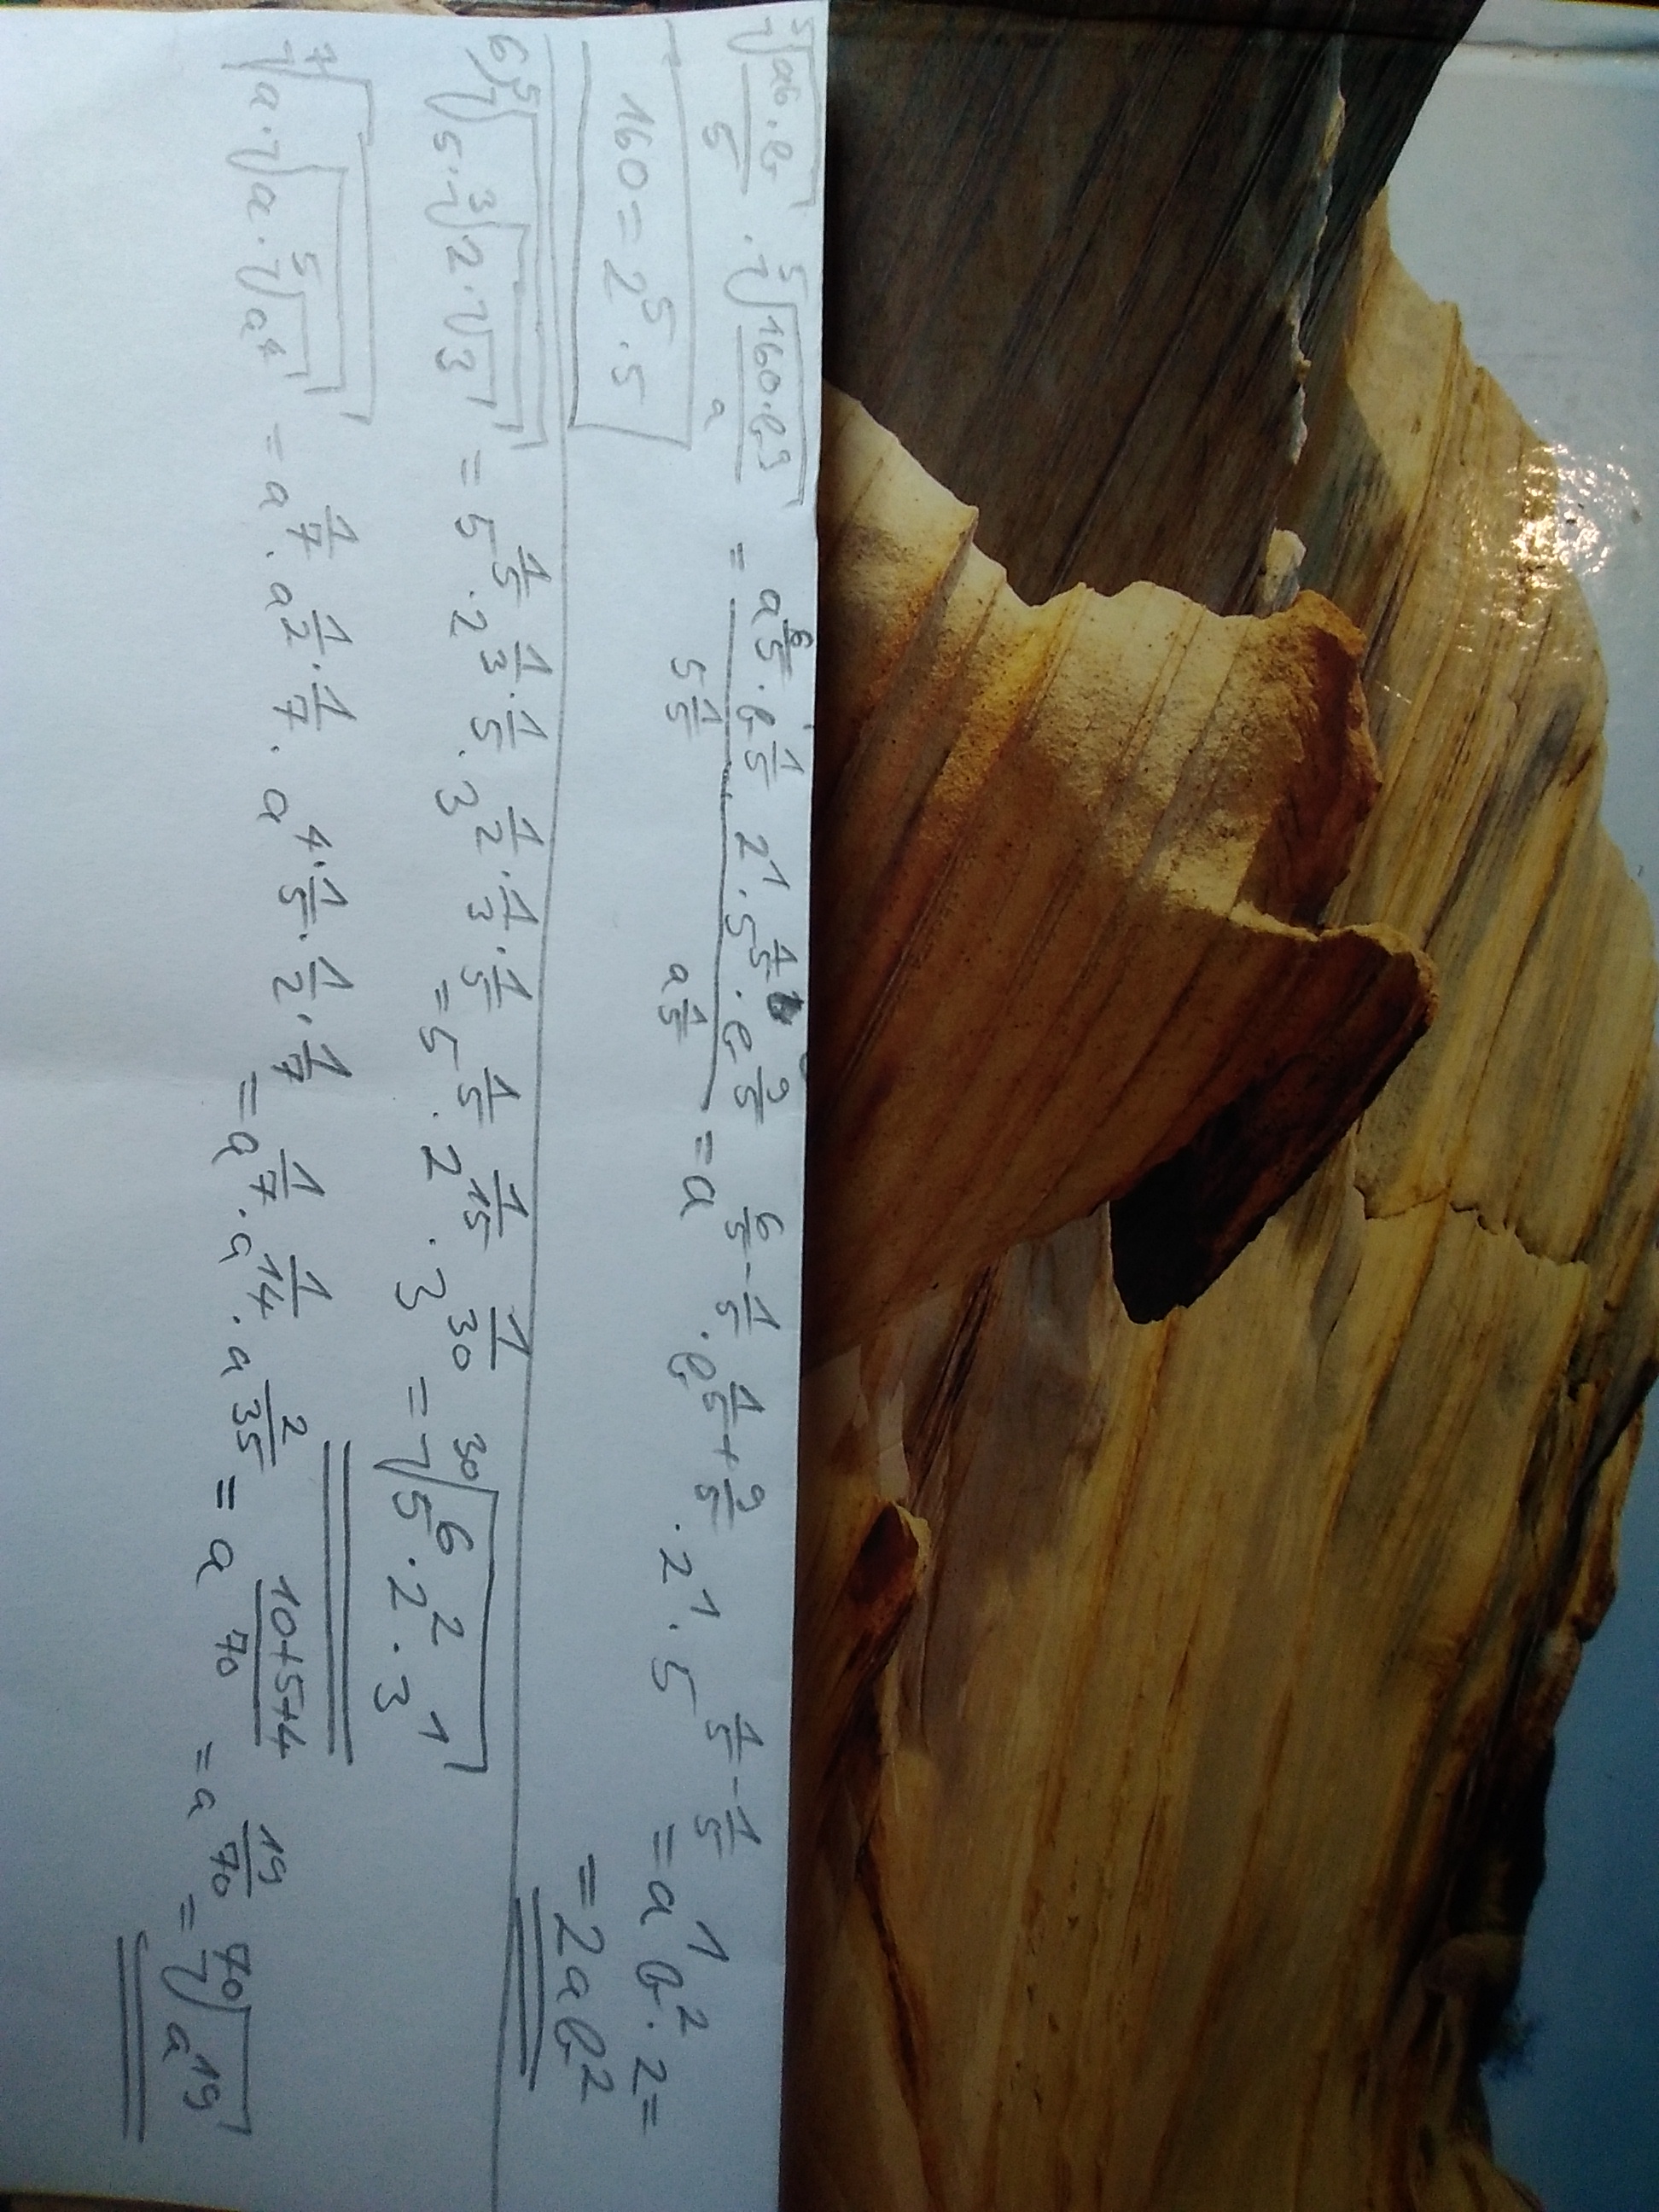 ⁵√(a⁶·b/5) · ⁵√(160·b⁹/a) = (a^(6/5) · b^(1/5) · 2¹ · 5^(1/5) · b^(9/5)) / (5^(1/5) a^(1/5)) = a^(6/5 - 1/5) · b^(1/5 + 9/5) · 2¹ · 5^(1/5 - 1/5) = a¹b²·2 =
= 2ab²
160 = 2⁵·5
6) ⁵√(5·³√(2·√3)) = 5^(1/5) · 2^(1/3 · 1/5) · 3^(1/2 · 1/3 · 1/5) = 5^(1/5) · 2^(1/15) · 3^(1/30) = ³⁰√(5⁶·2²·3¹)
⁷√(a·√(a·⁵√(a⁴))) = a^(1/7) · a^(1/2 · 1/7) · a^(4 · 1/5 · 1/2 · 1/7) = a^(1/7) · a^(1/14) · a^(2/35) = a^((10+5+4)/70) = a^(19/70) = ⁷⁰√(a¹⁹)